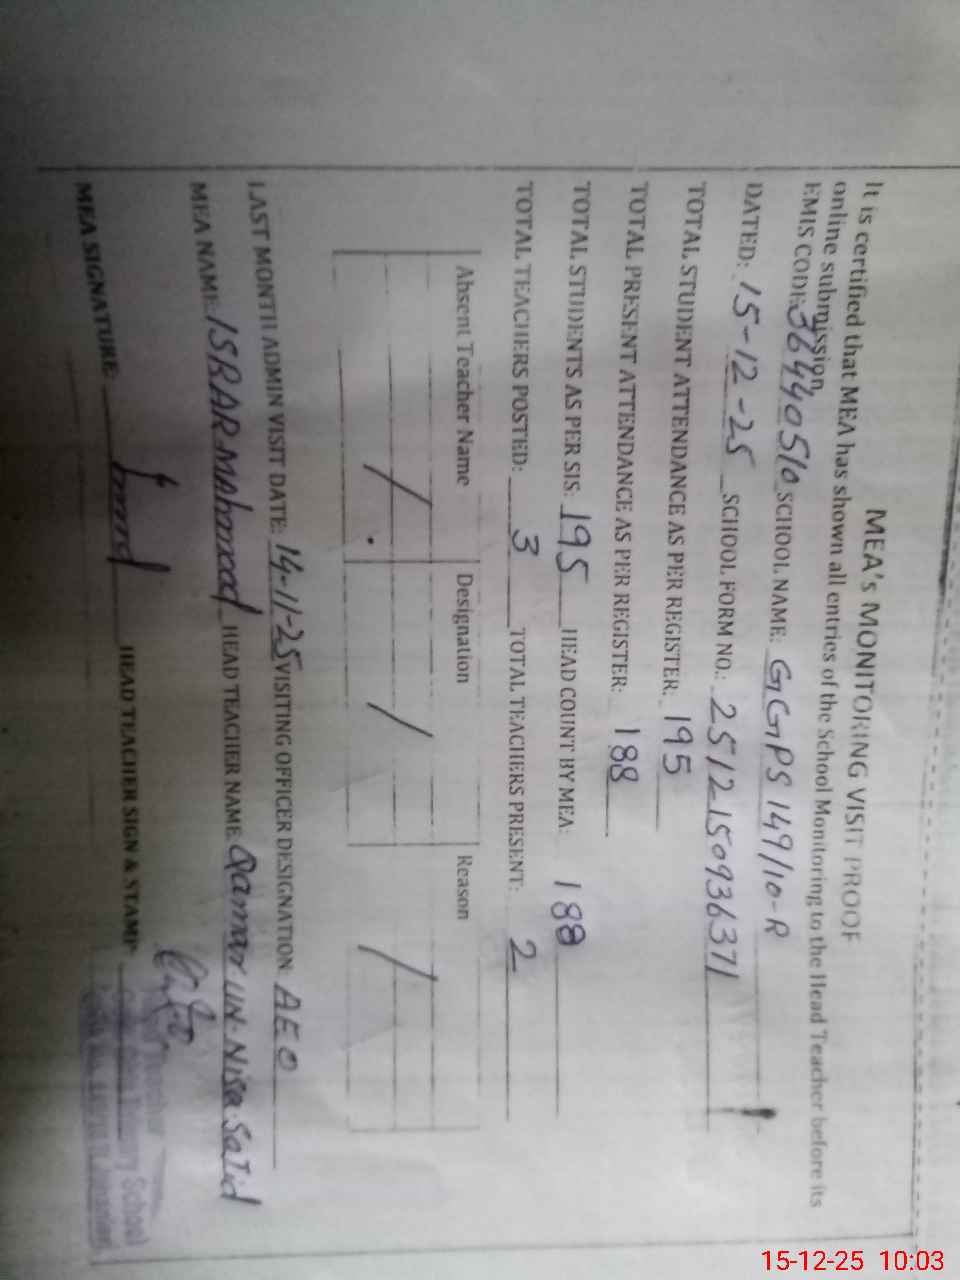 MEA's MONITORING VISIT PROOF
It is certified that MEA has shown all entries of the School Monitoring to the Head Teacher before its
online submission
EMIS CODE: 36440510 SCHOOL NAME: GGPS 149/10-R
DATED: 15-12-25 SCHOOL FORM NO.: 2512150936371
TOTAL STUDENT ATTENDANCE AS PER REGISTER: 195
TOTAL PRESENT ATTENDANCE AS PER REGISTER: 188
TOTAL STUDENTS AS PER SIS: 195 HEAD COUNT BY MEA: 188
TOTAL TEACHERS POSTED: 3 TOTAL TEACHERS PRESENT: 2
Absent Teacher Name Designation Reason
/ / /
LAST MONTH ADMIN VISIT DATE: 14-11-25 VISITING OFFICER DESIGNATION AEO
MEA NAME: ISRAR MAhmood HEAD TEACHER NAME: Qamar UN-Nisa SaJid
MEA SIGNATURE: HEAD TEACHER SIGN & STAMP
Teacher
Primary School
15-12-25 10:03